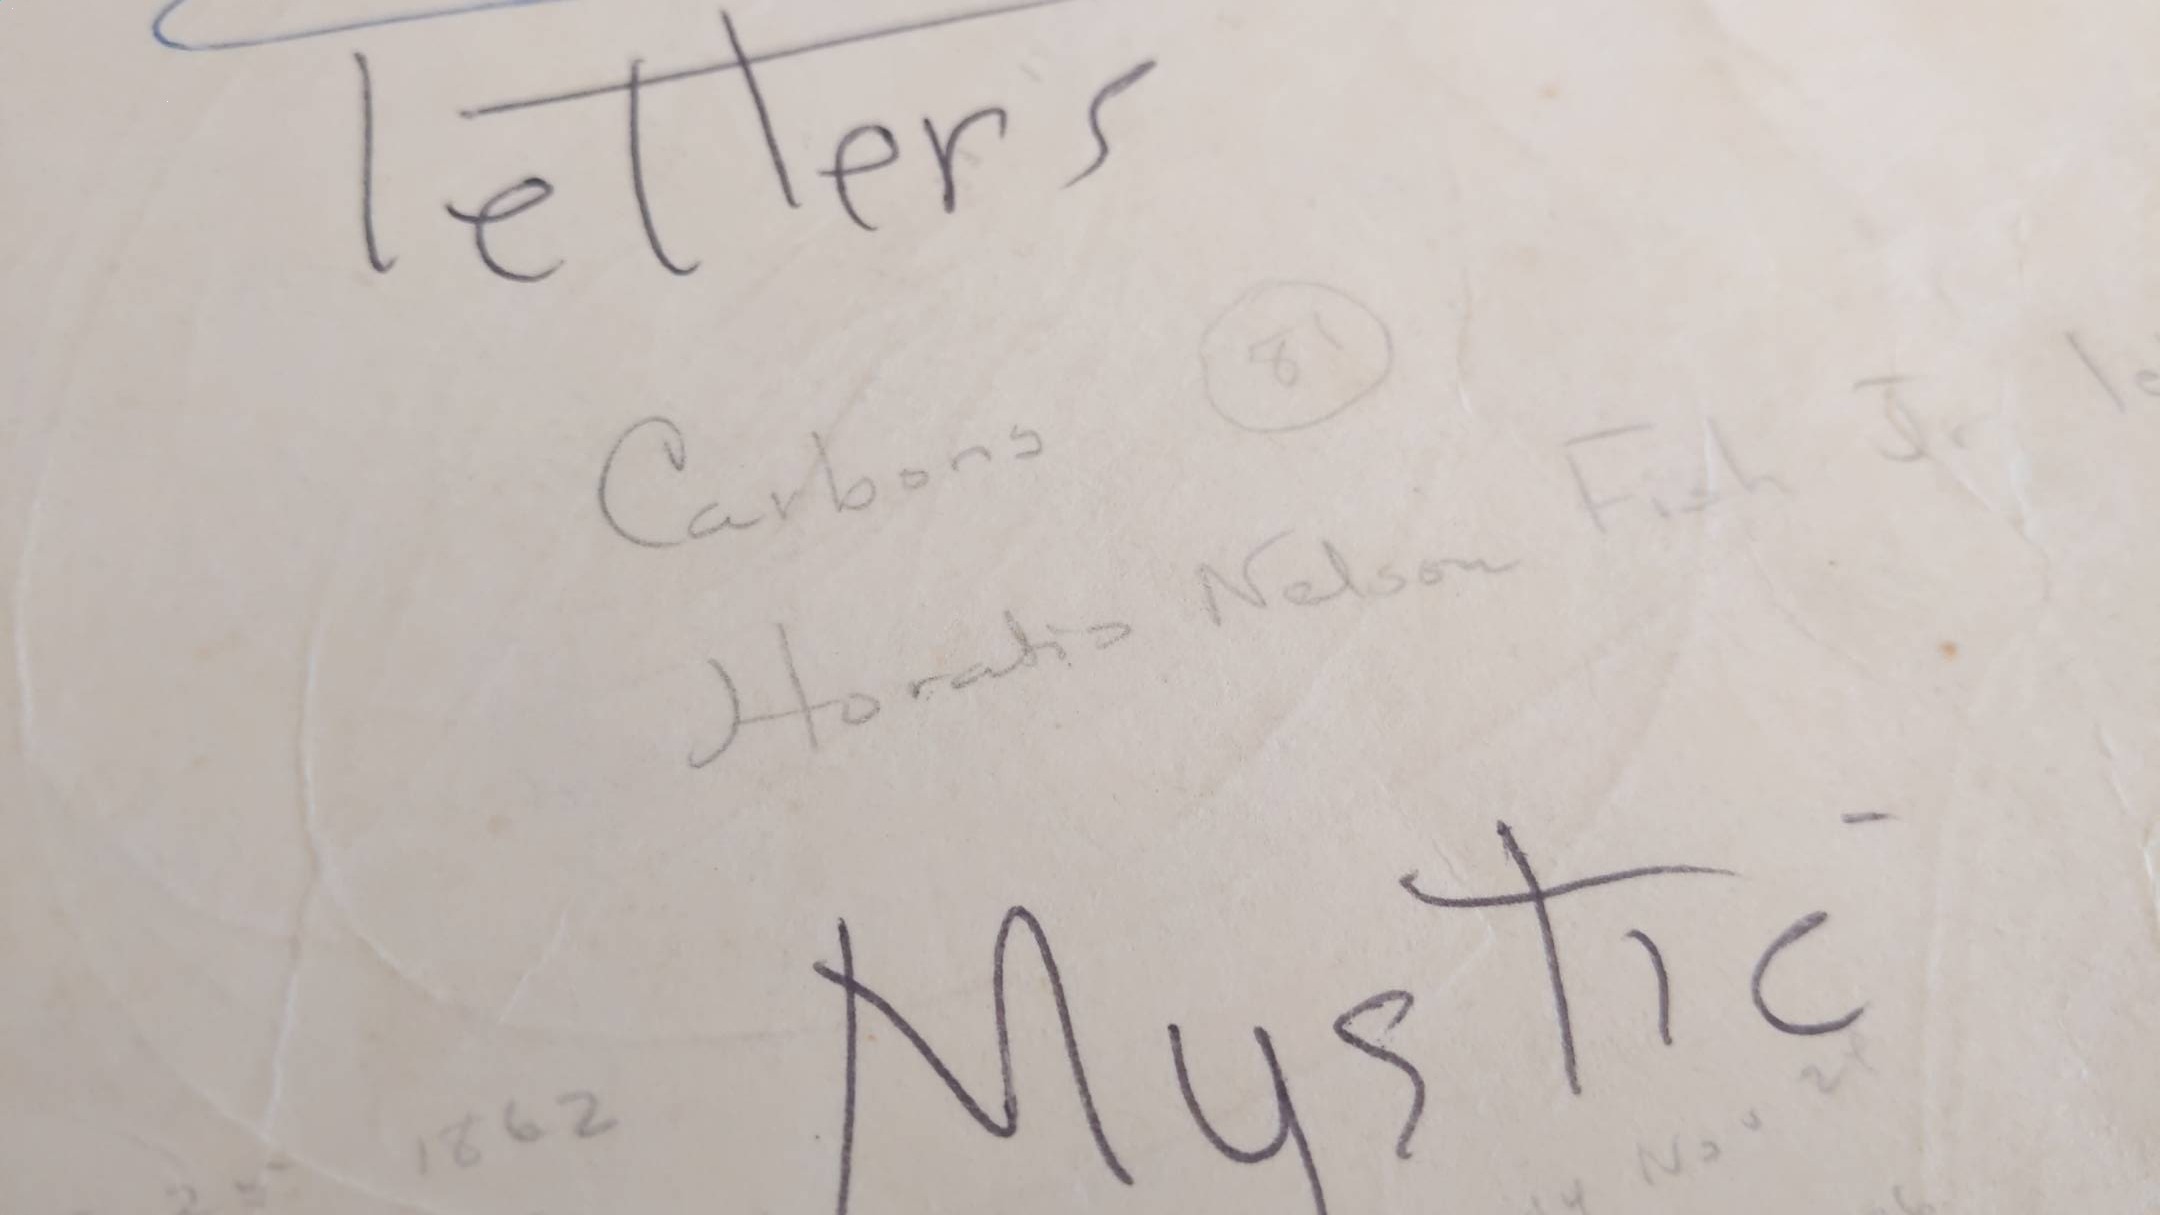 letters
8
Carbons
Horatio Nelson Fish Jr
Mystic
1862